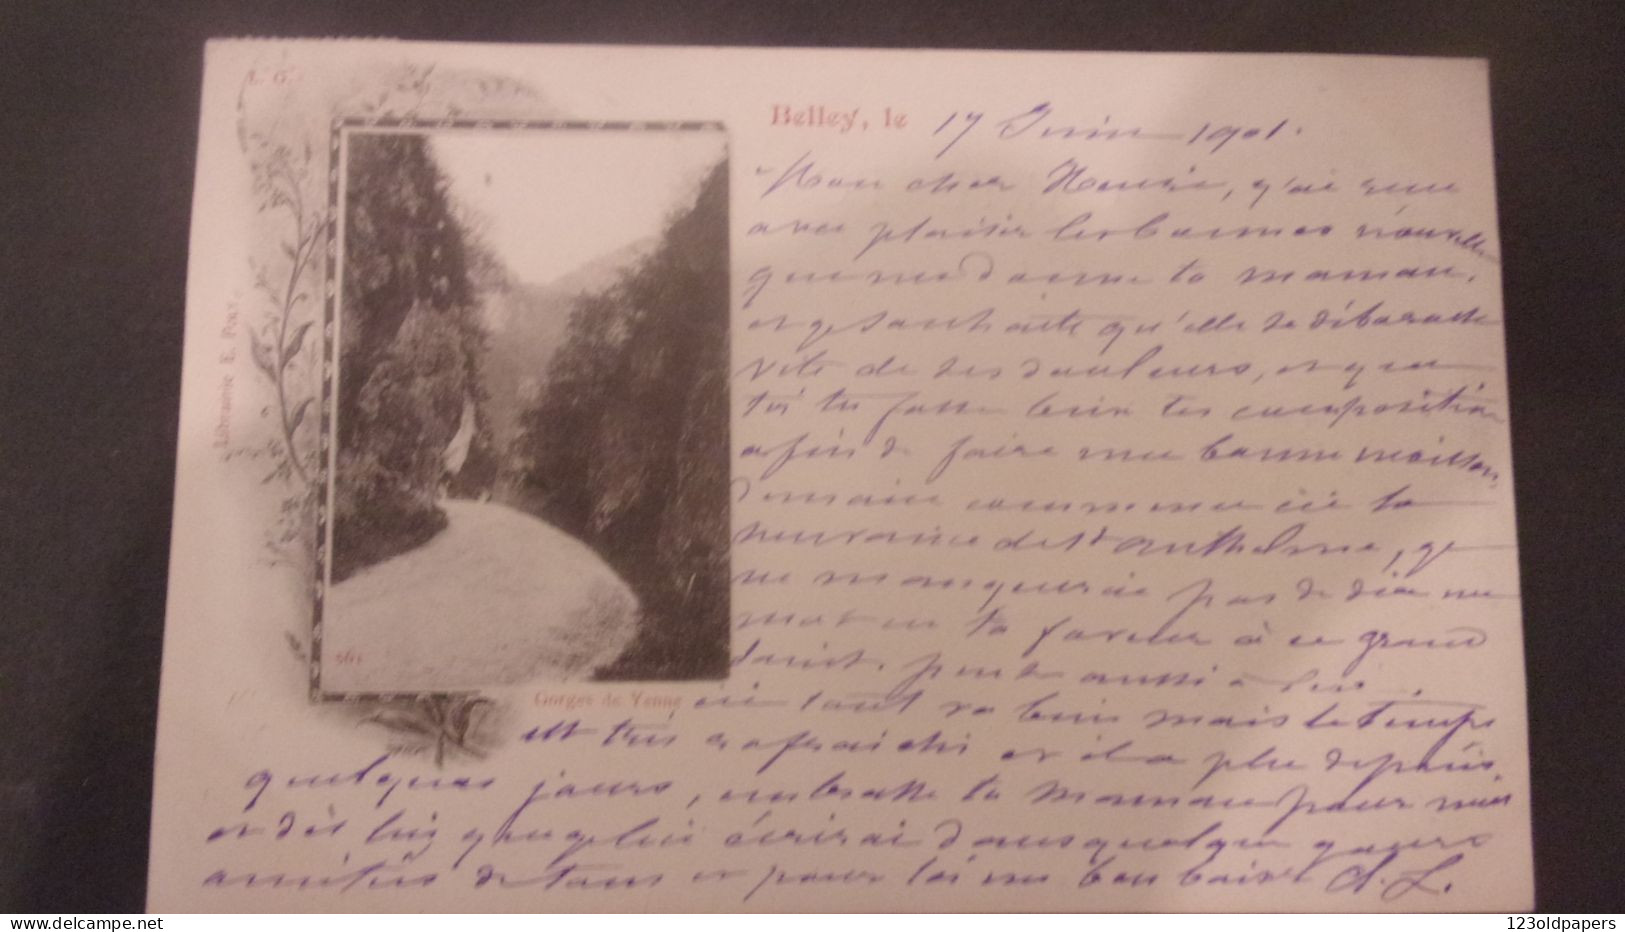 L. G.
Belley, le 17 Juin 1901.
Mon cher Maurice, j'ai recu
avec plaisir les bonnes nouvelles
que me donne ta maman,
et je souhaite qu'elle se débarasse
vite de ses douleurs, et que
toi tu fasse bien tes compositions
afin de faire une bonne moisson,
demain commence ici la
neuvaine de St Anthelme, je
ne manquerai pas de dire un
mot en ta faveur à ce grand
Saint. aussi
Librairie E. Poly.
561
Gorges de Yenne
ici tout va bien mais le temps
est très rafraichi et il a plu depuis
quelques jours, embrasse ta maman pour moi
et dis lui que je lui écrirai dans quelque jours
amitiés de tous et pour toi un bon baiser A. L.
123oldpapers